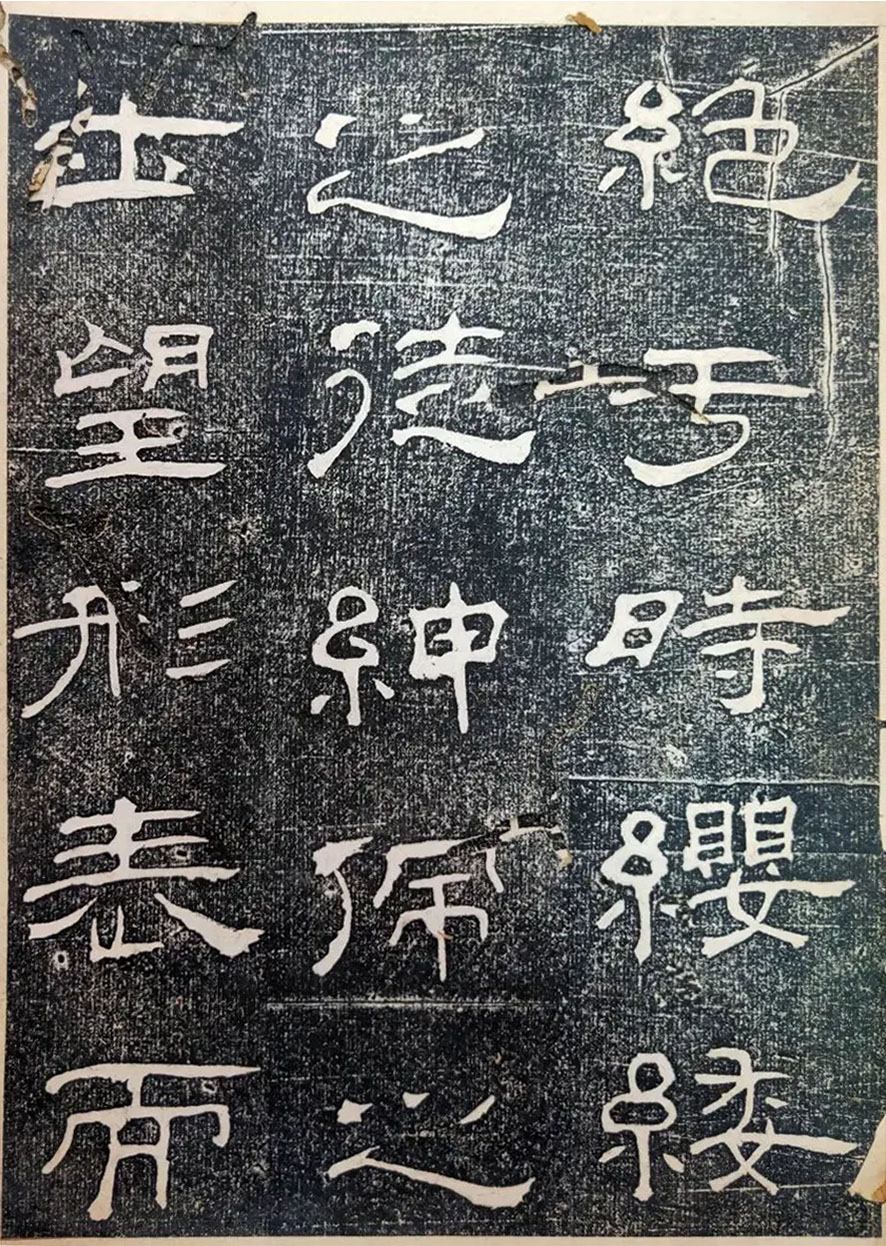 絕于時纓緌
之徒紳佩之
士望形表而